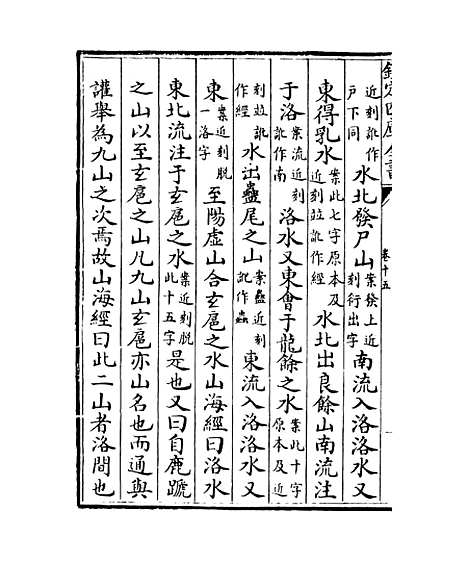 欽定四庫全書
卷十五
近刻訛作戶下同水北發尸山案發上近刻衍出字南流入洛洛水又
東得乳水案此七字原本及近刻竝訛作經水北出良餘山南流注
于洛案流近刻訛作南洛水又東會于龍餘之水案此十字原本及近
刻竝訛作經水出蠱尾之山案蠱近刻訛作蟲東流入洛洛水又
東案近刻脫一洛字至陽虛山合玄扈之水山海經曰洛水
東北流注于玄扈之水案近刻脫此十五字是也又曰自鹿蹏
之山以至玄扈之山凡九山玄扈亦山名也而通與
讙舉為九山之次焉故山海經曰此二山者洛間也